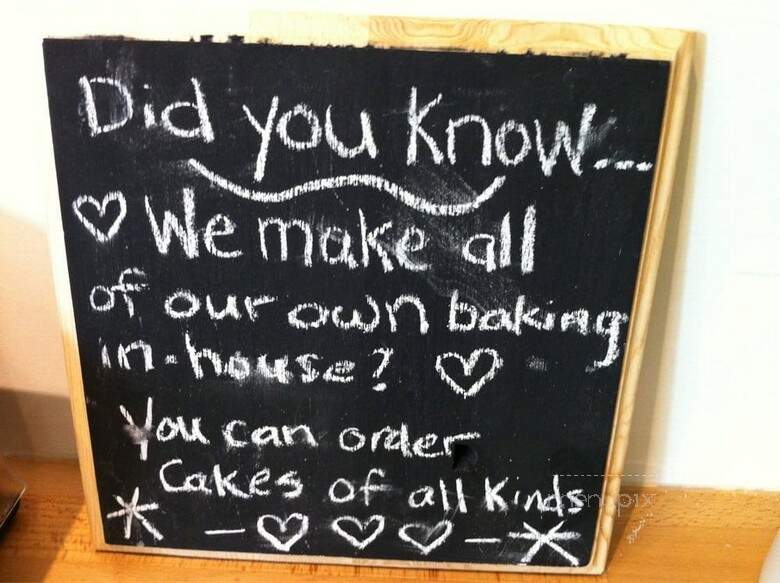 Did you know...
♡ We make all
of our own baking
in-house? ♡
You can order
Cakes of all kinds
* - ♡ ♡ ♡ - *